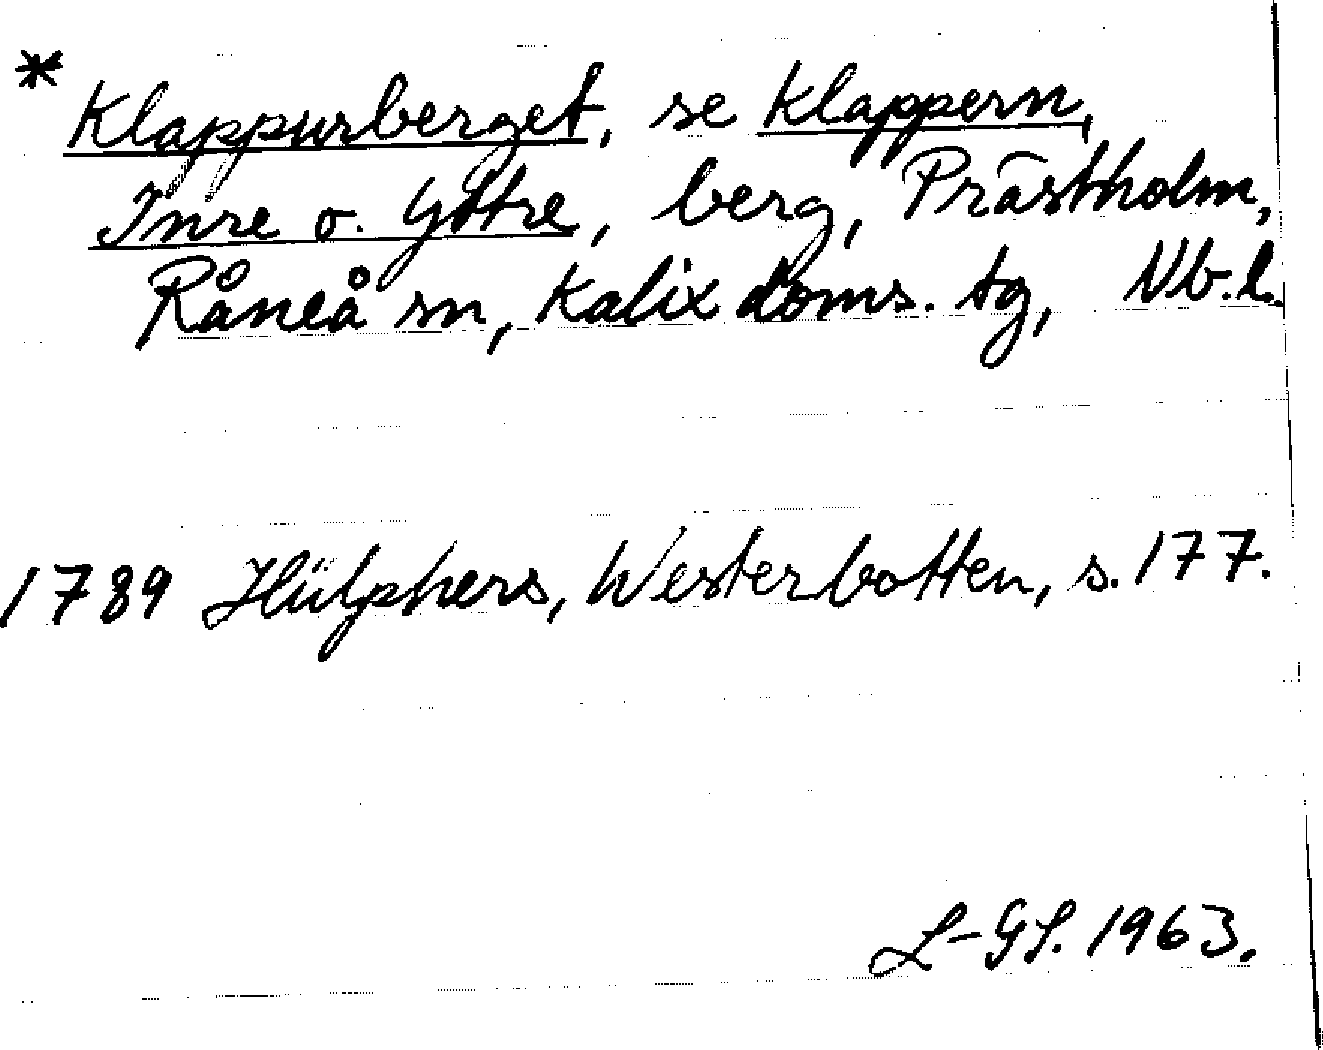 * Klappurberget, se Klappern,
Inre o. Yttre, berg, Prästholm,
Råneå sn, Kalix doms. tg, Nb.l.
1789 Hülphers, Westerbotten, s. 177.
L-GS. 1963.